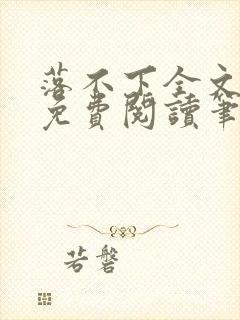 落不下全文
免費閱讀筆
若磐